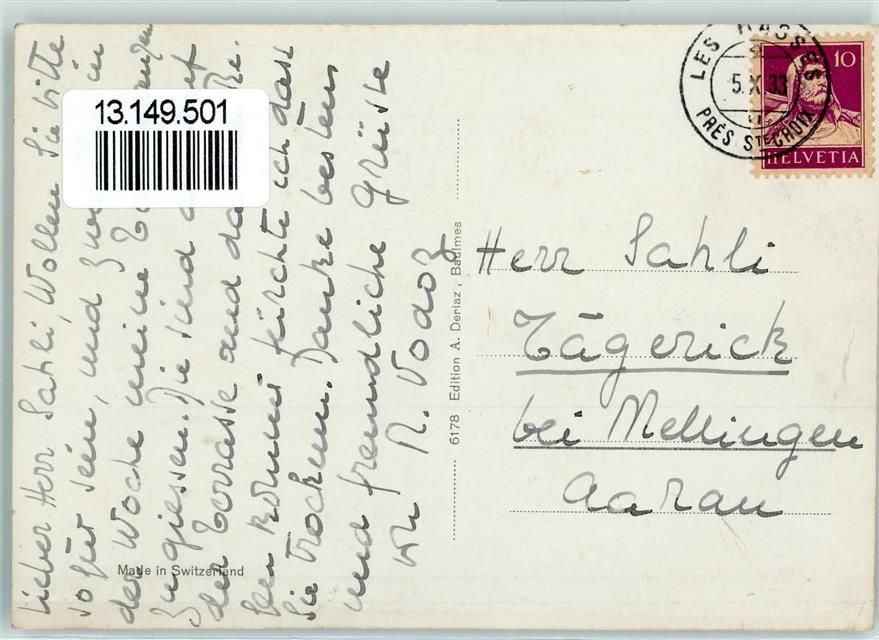 Lieber Herr Sahli, Wollen Sie bitte
sofut sein, und in
der Woche meine
zu giessen. Die sind auf
der Terrasse und
kein kommt fürchte ich dass
Sie Trocknen. Danke bestens
und freundliche Grüsse
M. Vodoz
13.149.501
Made in Switzerland
6178 Edition A. Deriaz, Baulmes
LES RASSES
5.X.33
PRÈS STE CROIX
10
HELVETIA
Herr Sahli
Tägerick
bei Mellingen
Aarau